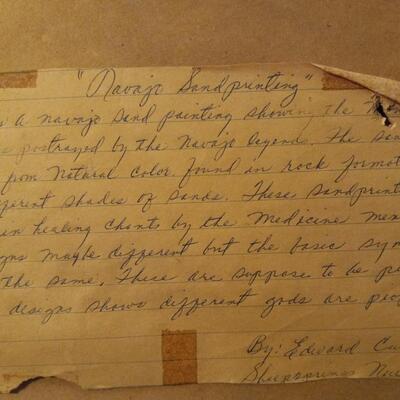 "Navajo Sandprinting"
a navajo sand painting showing the
portrayed by the Navajo legend. The
from Natural Color found in rock format
fferent shades of sands. These sandprint
in healing chants by the Medicine Men
gns maybe different but the basic sym
the same. These are suppose to be
designs shows different gods are
By: Edward
Sheepsprings New